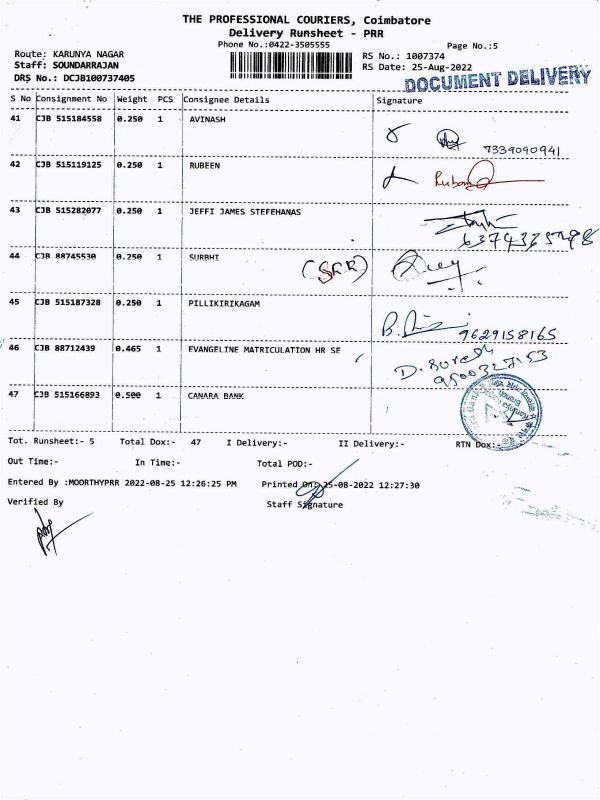 THE PROFESSIONAL COURIERS, Coimbatore
Delivery Runsheet - PRR
Phone No.:0422-3505555
Page No.:5
Route: KARUNYA NAGAR
RS No.: 1007374
Staff: SOUNDARRAJAN
RS Date: 25-Aug-2022
DRS No.: DCJB100737405
DOCUMENT DELIVERY
S No Consignment No Weight PCS Consignee Details Signature
41 CJB 515184558 0.250 1 AVINASH
7339090941
42 CJB 515119125 0.250 1 RUBEEN
43 CJB 515282077 0.250 1 JEFFI JAMES STEFEHANAS
44 CJB 88745530 0.250 1 SURBHI
45 CJB 515187328 0.250 1 PILLIKIRIKAGAM
9629158165
46 CJB 88712439 0.465 1 EVANGELINE MATRICULATION HR SE
D. Suresh
9500327153
47 CJB 515166893 0.500 1 CANARA BANK
Tot. Runsheet:- 5 Total Dox:- 47 I Delivery:- II Delivery:- RTN Dox:-
Out Time:- In Time:- Total POD:-
Entered By :MOORTHYPRR 2022-08-25 12:26:25 PM Printed On: 25-08-2022 12:27:30
Verified By Staff Signature